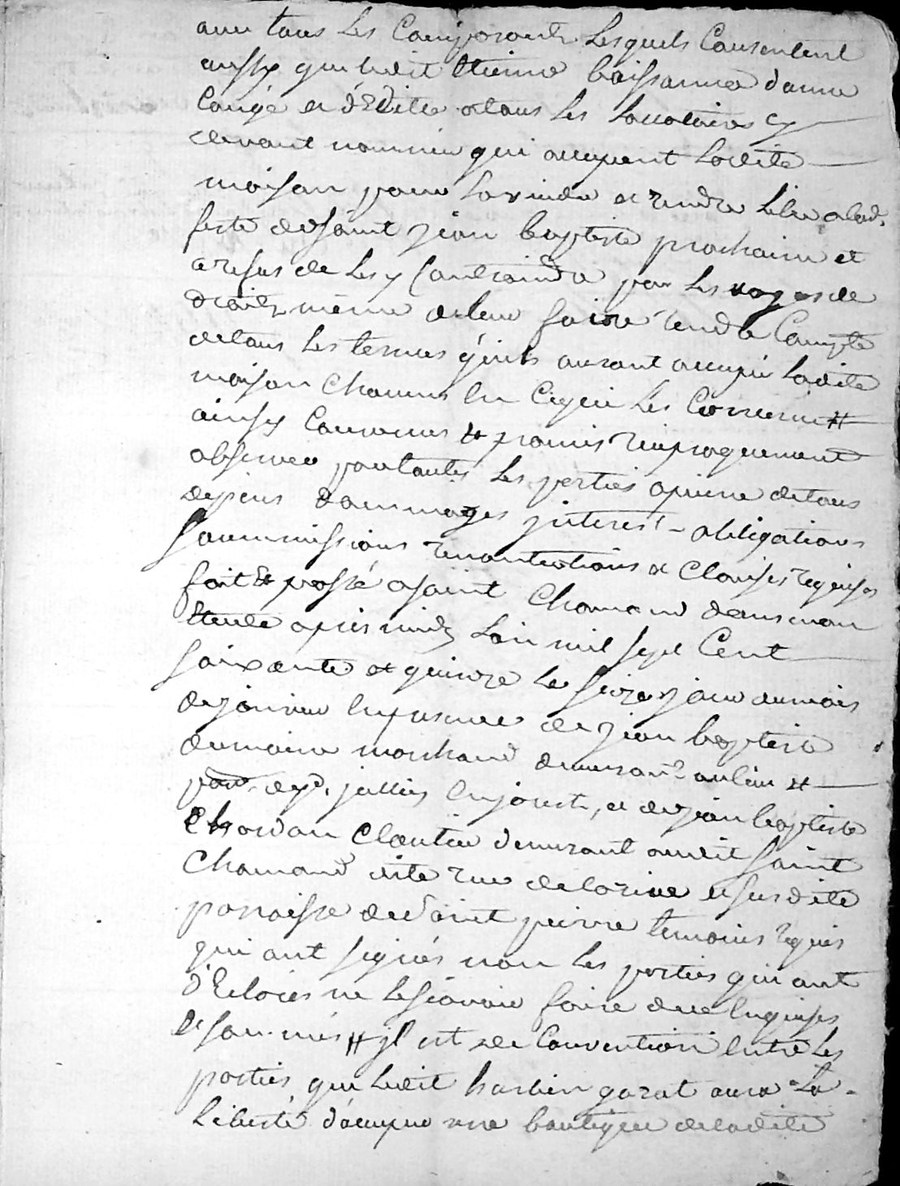 avec tous les Composants lesquels Consentent
aussy que ledit Etienne baissance donne
Congé et d'Edite a tous les locotaires cy
devant nommés qui occupent ladite
maison pour la vuider et rendre libre a lad.
feste de Saint jean baptiste prochaine et
a refus de les y Contraindre par les voyes de
droit, même de leur faire rendre Compte
de tous les termes qu'ils auront occupés ladite
maison Chacuns en Ce qui les Concerne #
ainsy Convenus et promis reciproquement
observer par toutes les parties a peine de tous
depens dommages jnterest - obligations
Soummissions renontiations et Clauses requises
fait et passé a Saint Chamond dans mon
Etude apres midy L'an mil sept Cent
soixante et quinze le seize jour du mois
de janvier En presence de jean baptiste
dumaine marchand demurant au lieu #
parr. de jullien En joust, et de jean baptiste
Cloutier demurant audit Saint
Chamond dite rue de lorine et susdite
parroisse de Saint pierre temoins requis
qui ont signés non les parties qui ont
d'Eclarés ne le scavoir faire de ce Enquises
et sommés # jl est de Convention Entre les
parties que ledit garat aura la
liberté d'occuper une boutique de ladite